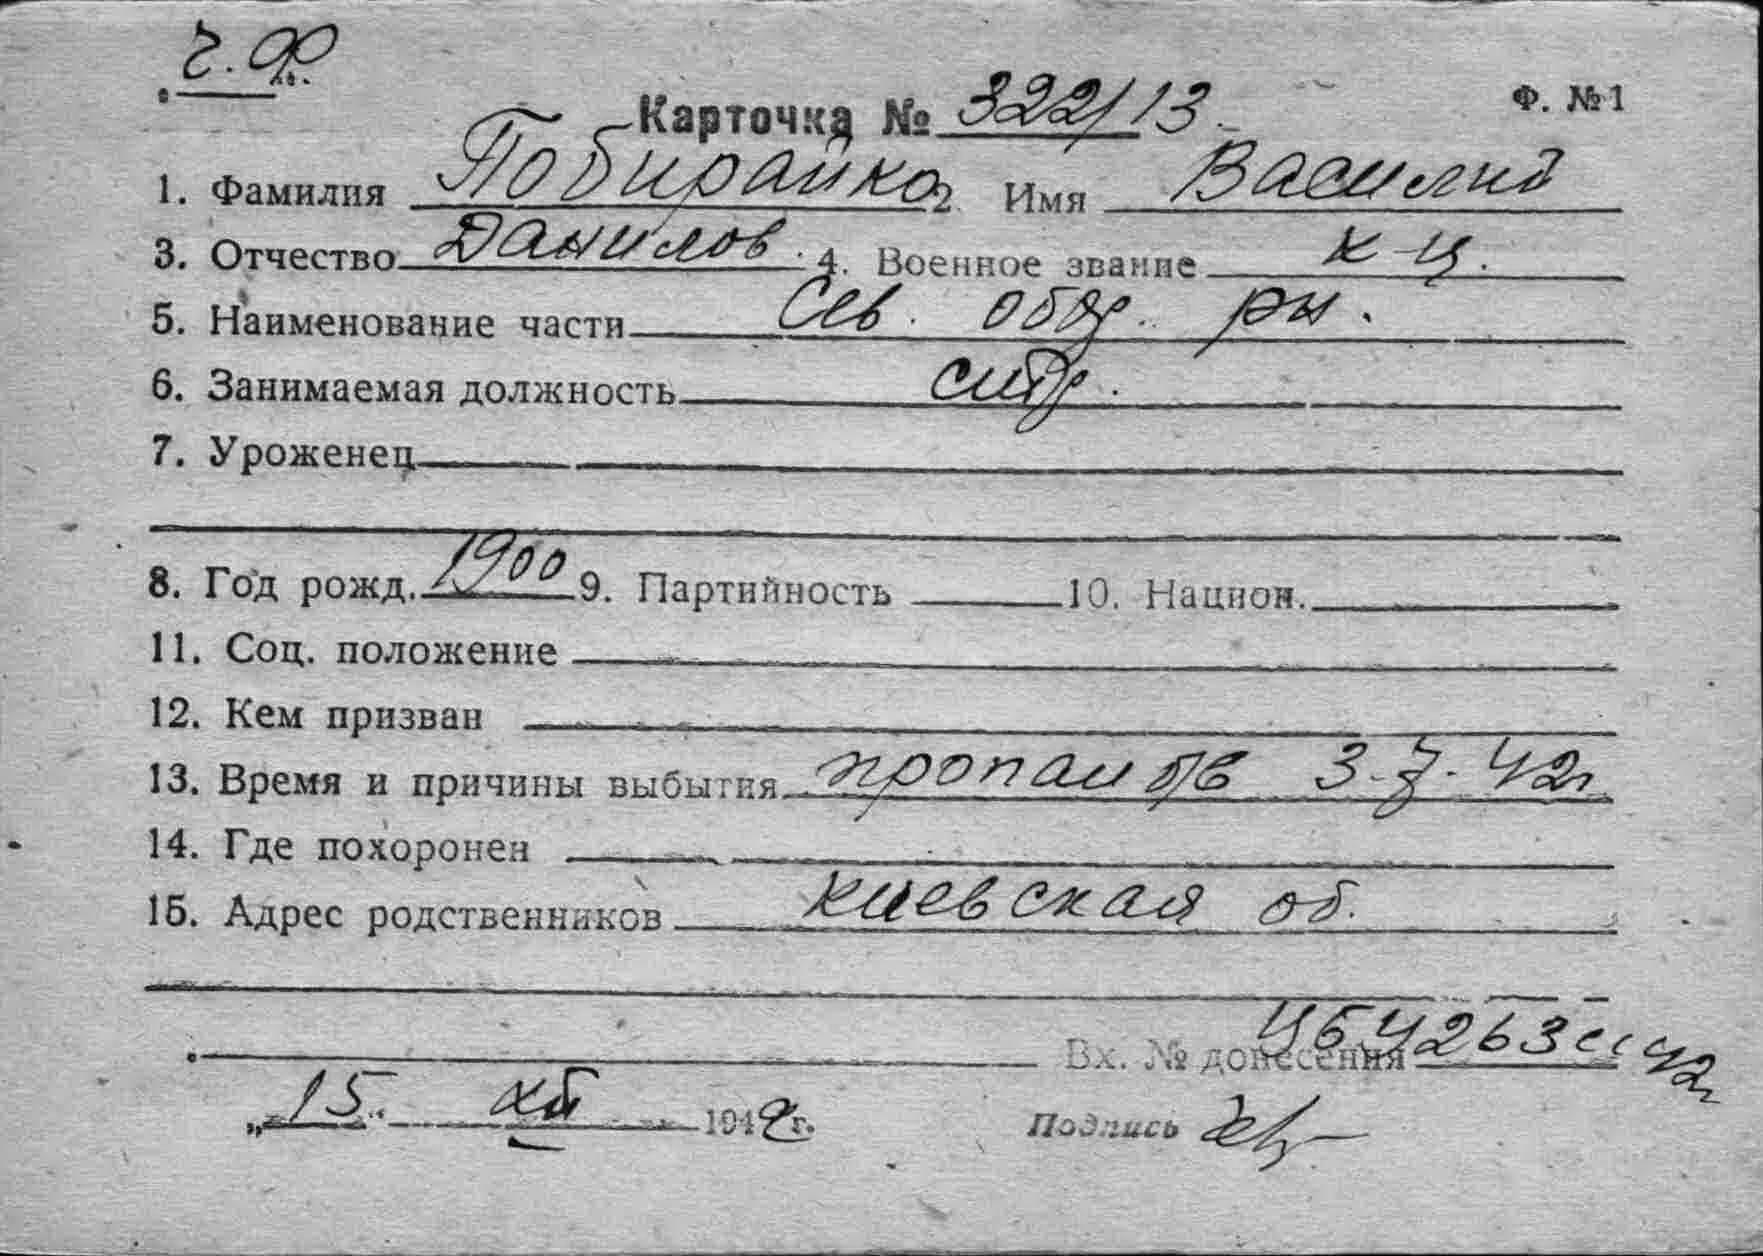 Ч.Ф.
Карточка № 322/13. Ф. №1
1. Фамилия Побирайко 2. Имя Василий
3. Отчество Данилов. 4. Военное звание к-ц.
5. Наименование части Сев. обор. рн.
6. Занимаемая должность
7. Уроженец
8. Год рожд. 1900 9. Партийность 10. Национ.
11. Соц. положение
12. Кем призван
13. Время и причины выбытия пропал б/в 3.7.42г
14. Где похоронен
15. Адрес родственников Киевская об.
Вх. № донесения 4263сс 42г
„15" XII 1942г. Подпись